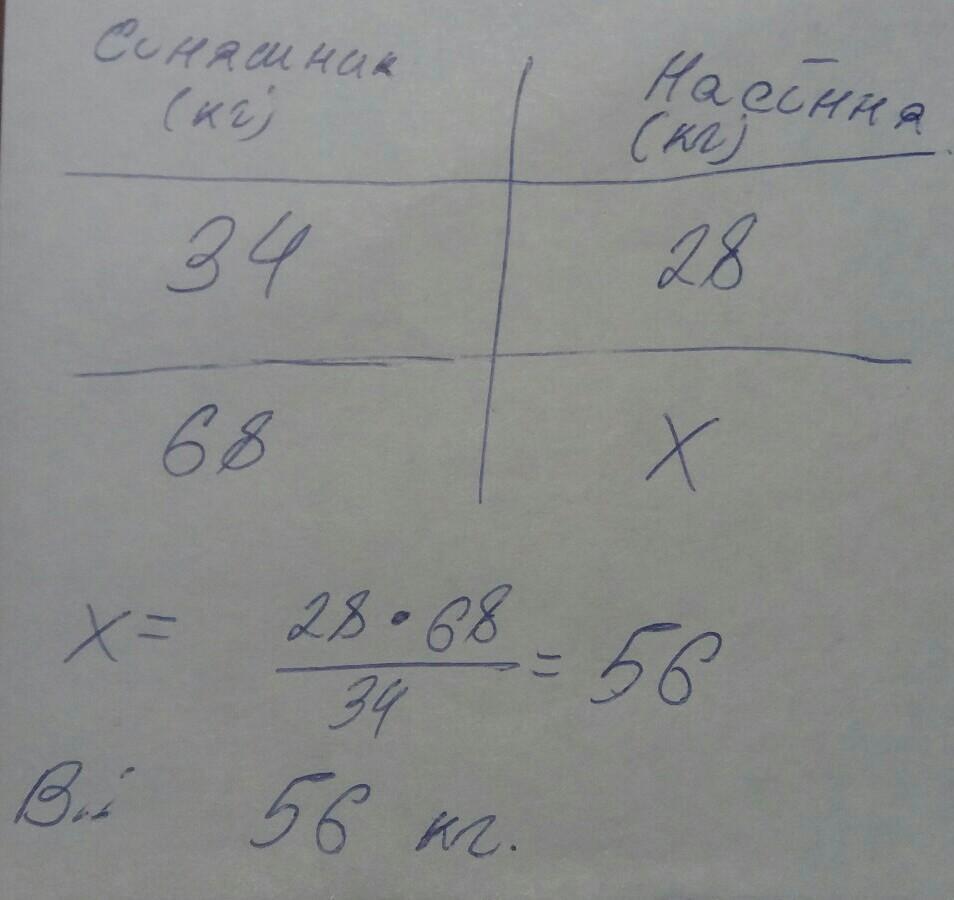 Соняшник Насіння
(кг) (кг)
34 28
68 X
X= 28 • 68 / 34 = 56
Ві 56 кг.